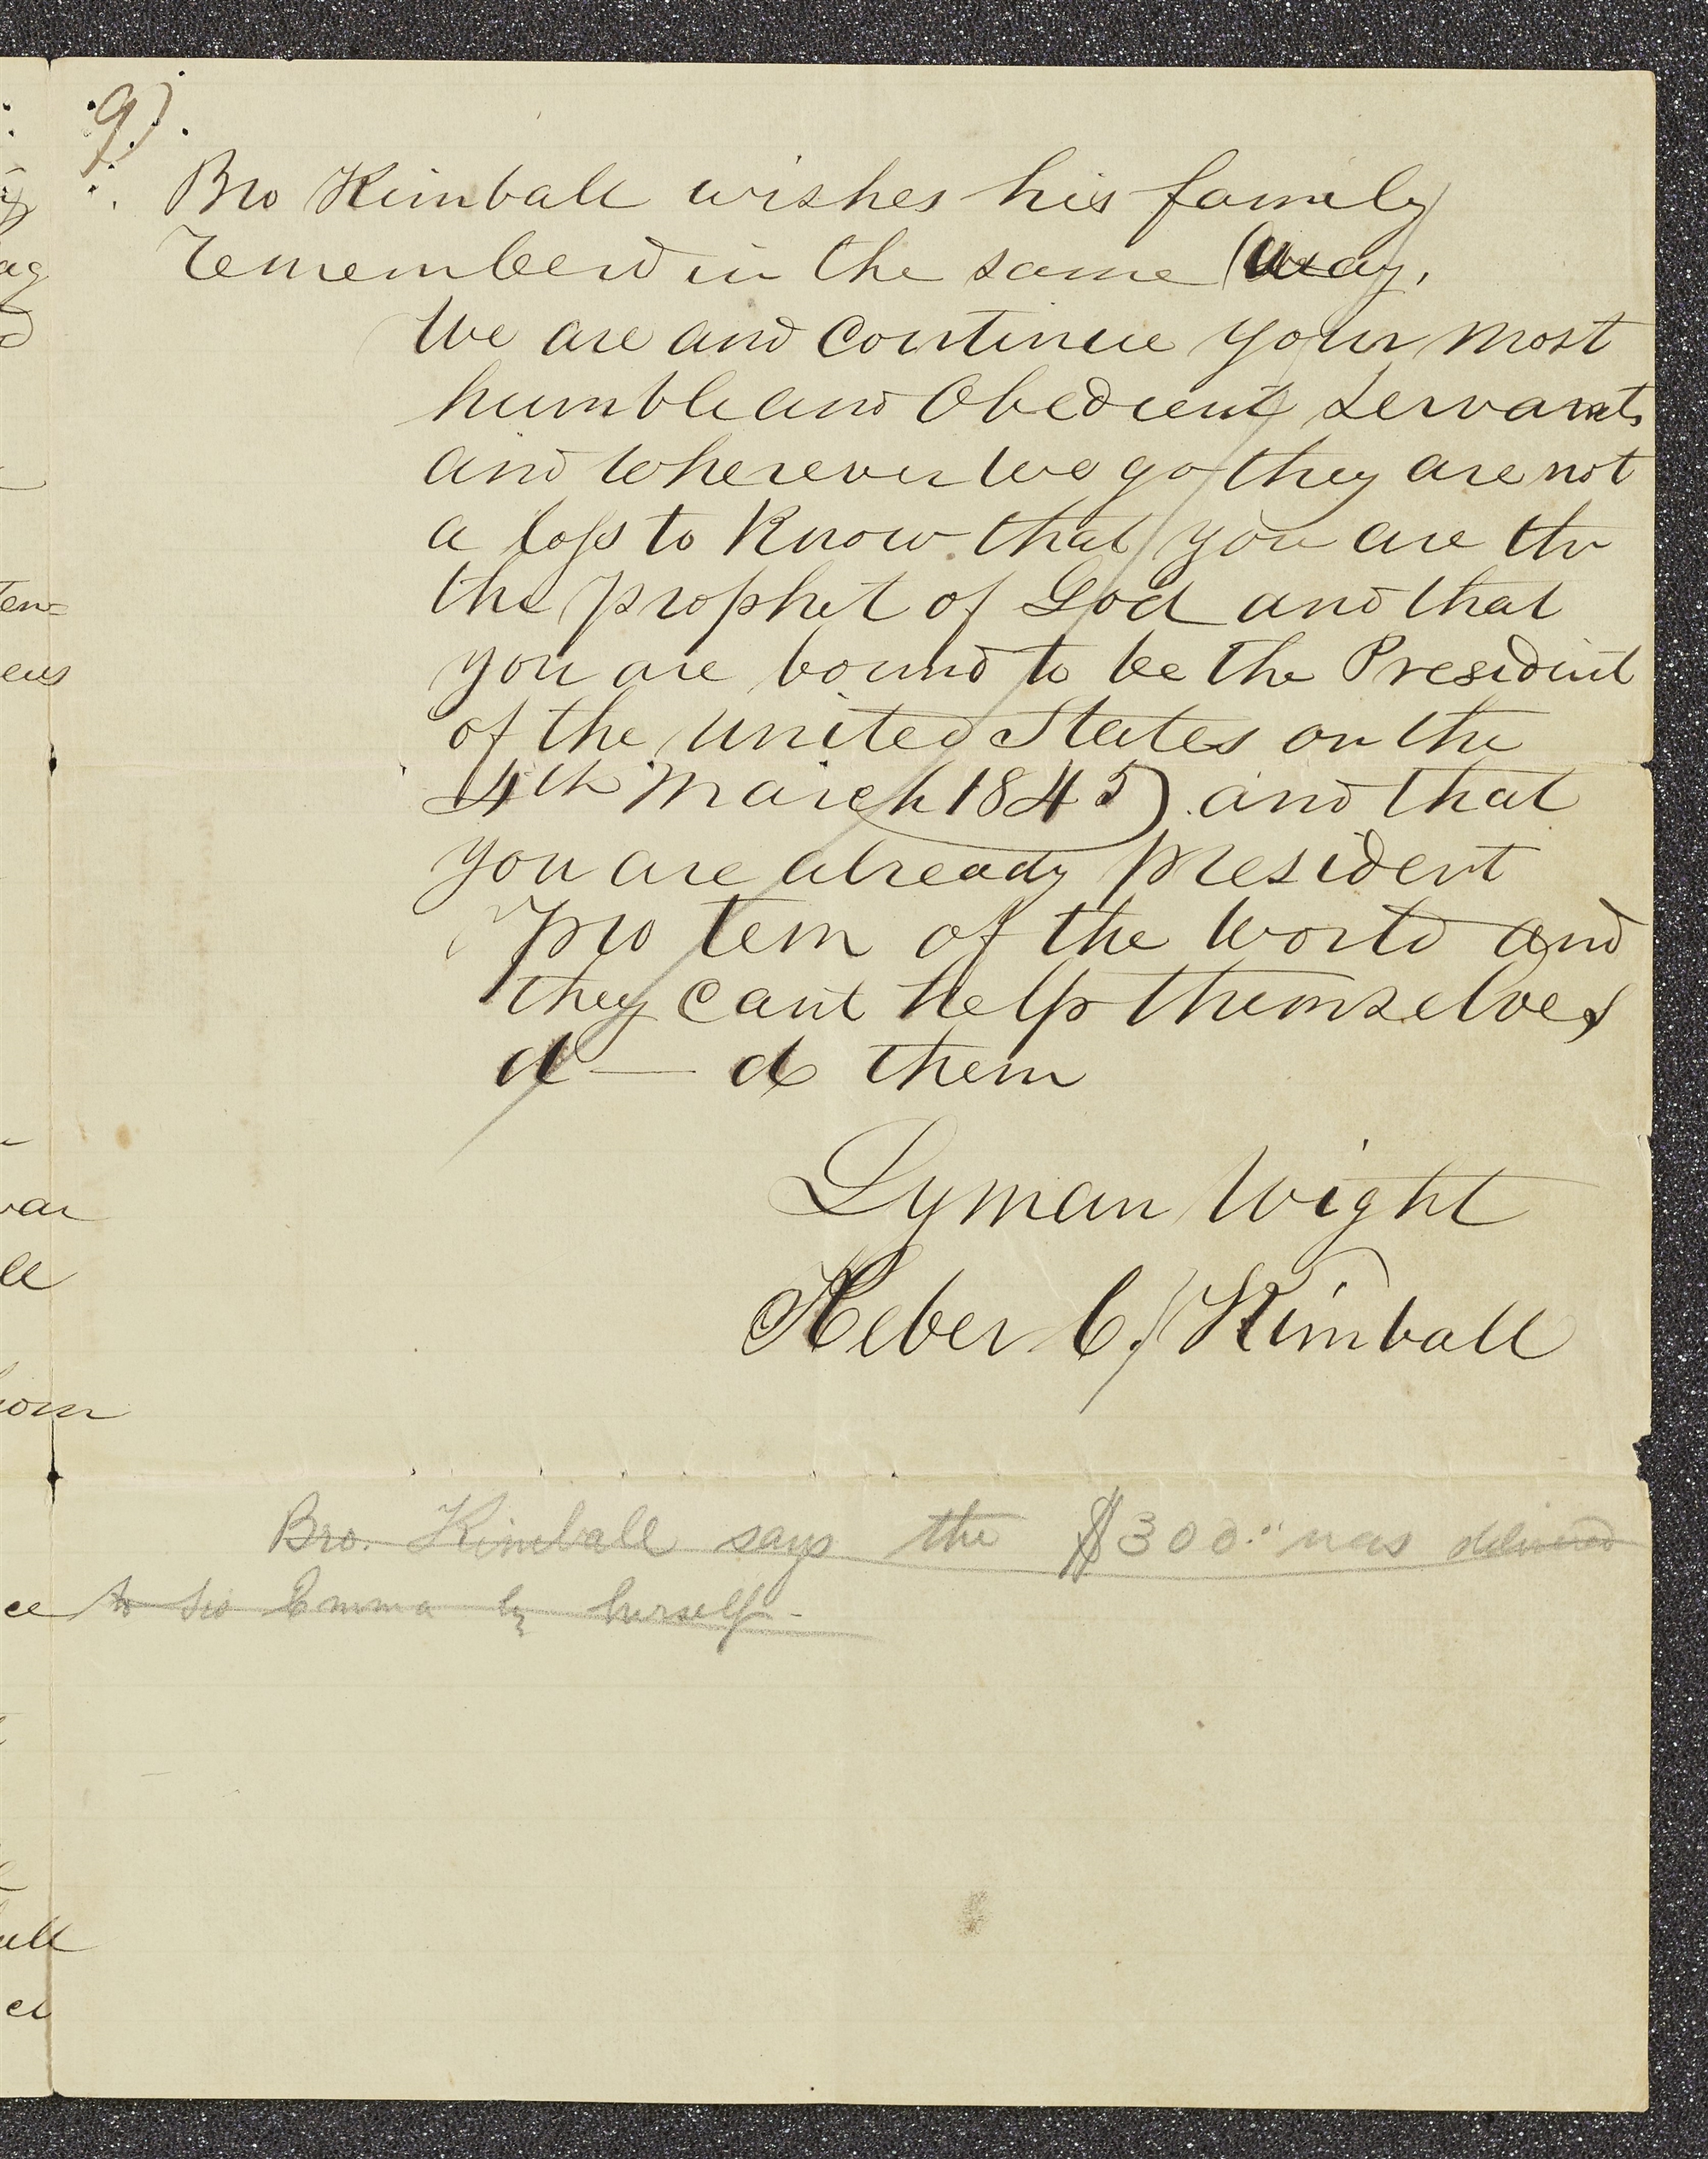 9).
Bro Kimball wishes his family
rememberd in the same way.
We are and continue your most
humble and Obedient servants
and wherever we go they are not
a loss to know that you are the
the prophet of God and that
you are bound to be the President
of the united States on the
4th March 1845 and that
you are already president
pro tem of the world and
they cant help themselves
d—d them
Lyman Wight
Heber C. Kimball
Bro. Kimball says the $300.00 was delivered
to Sis Emma by herself-